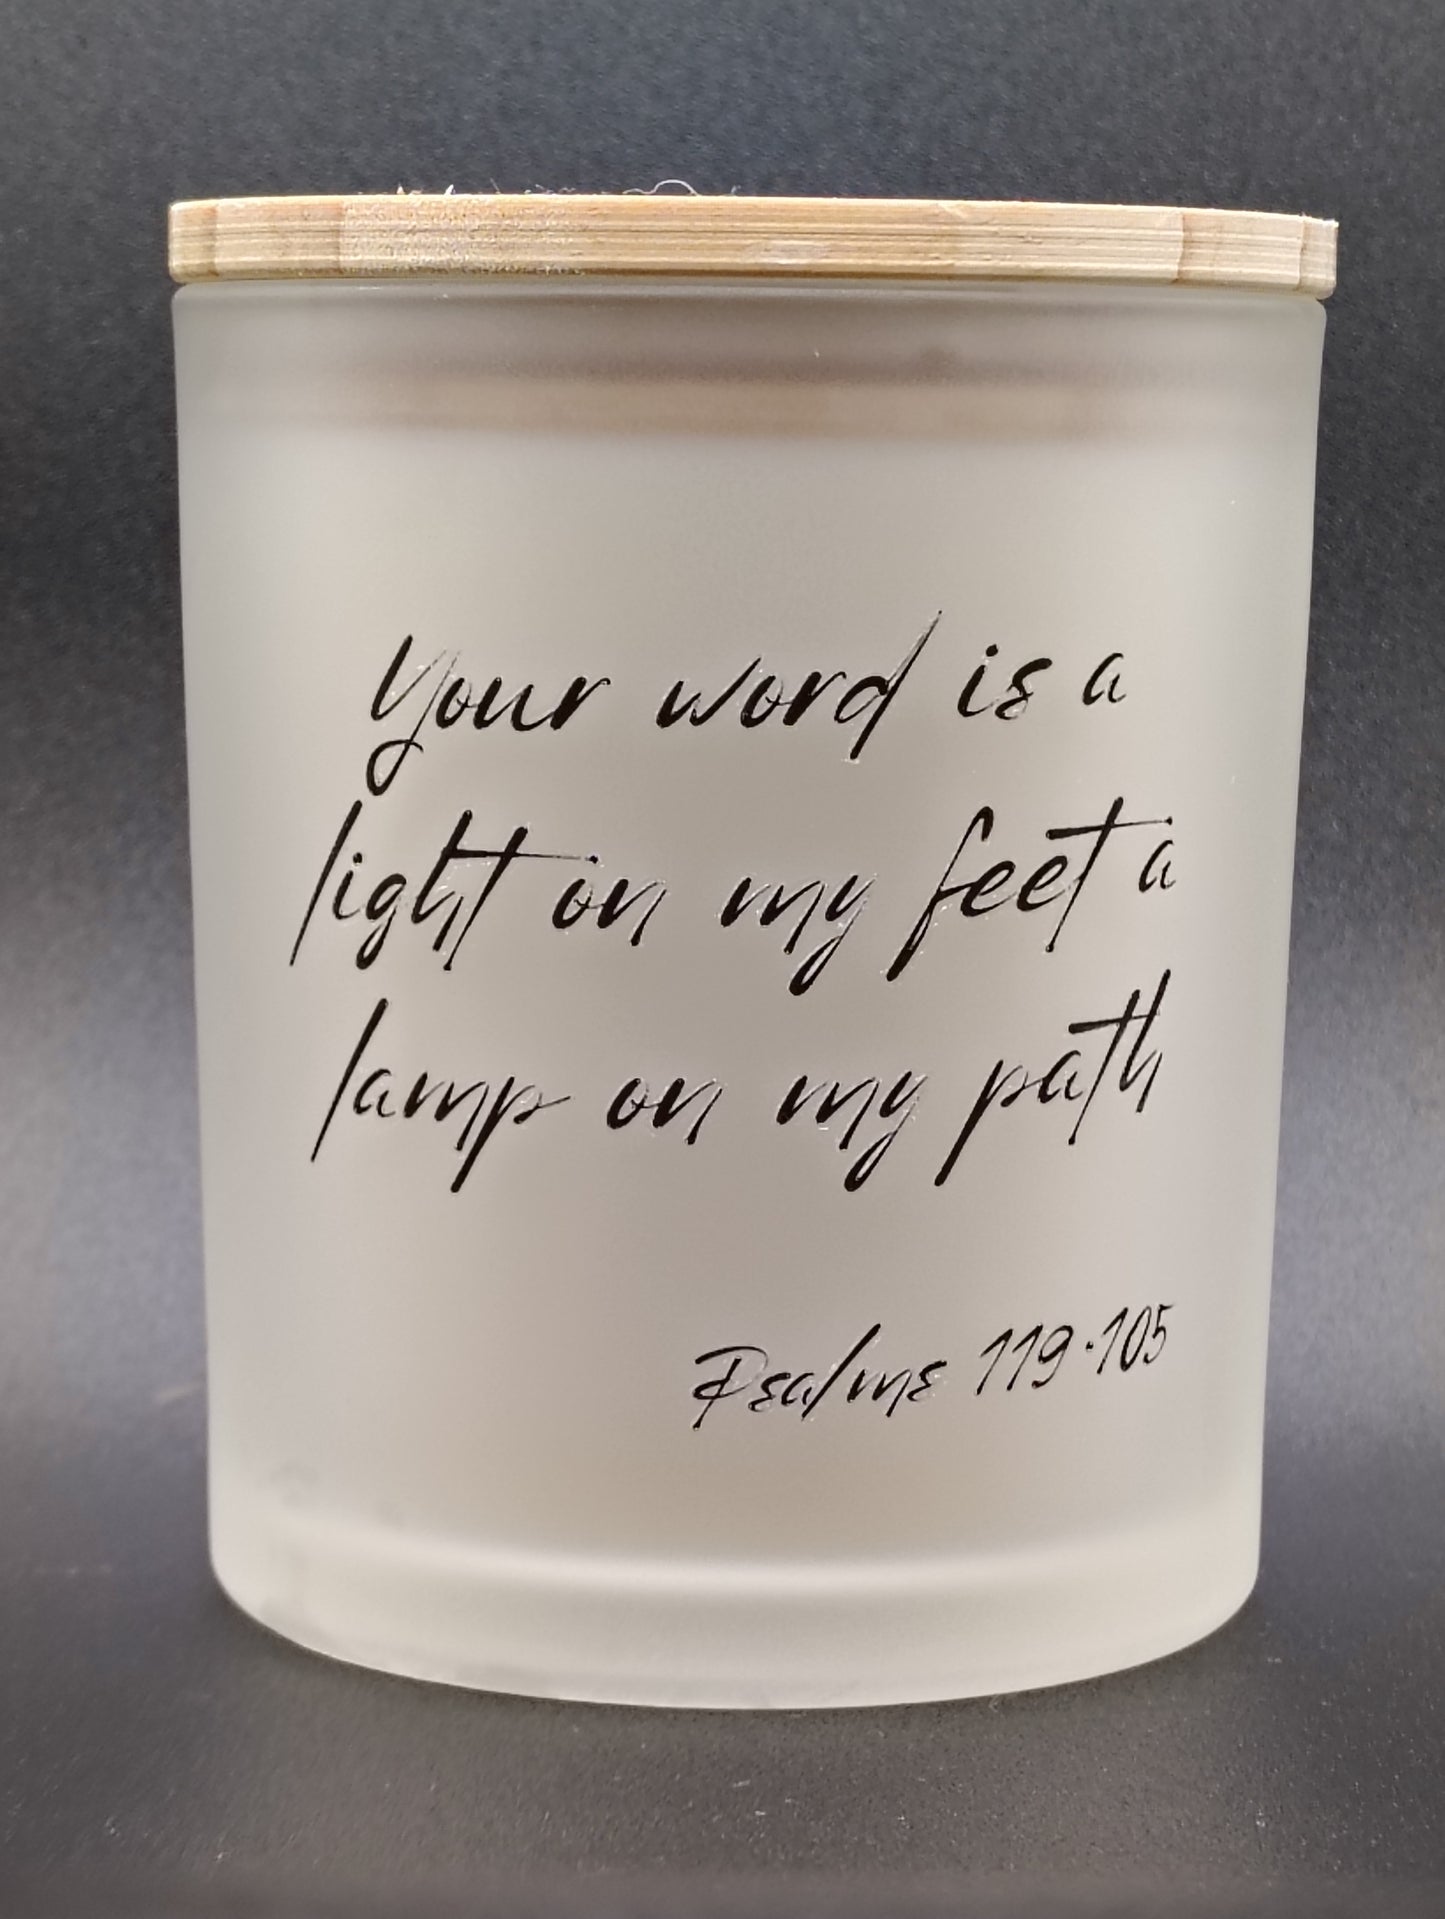 Your word is a
light on my feet a
lamp on my path
Psalms 119:105